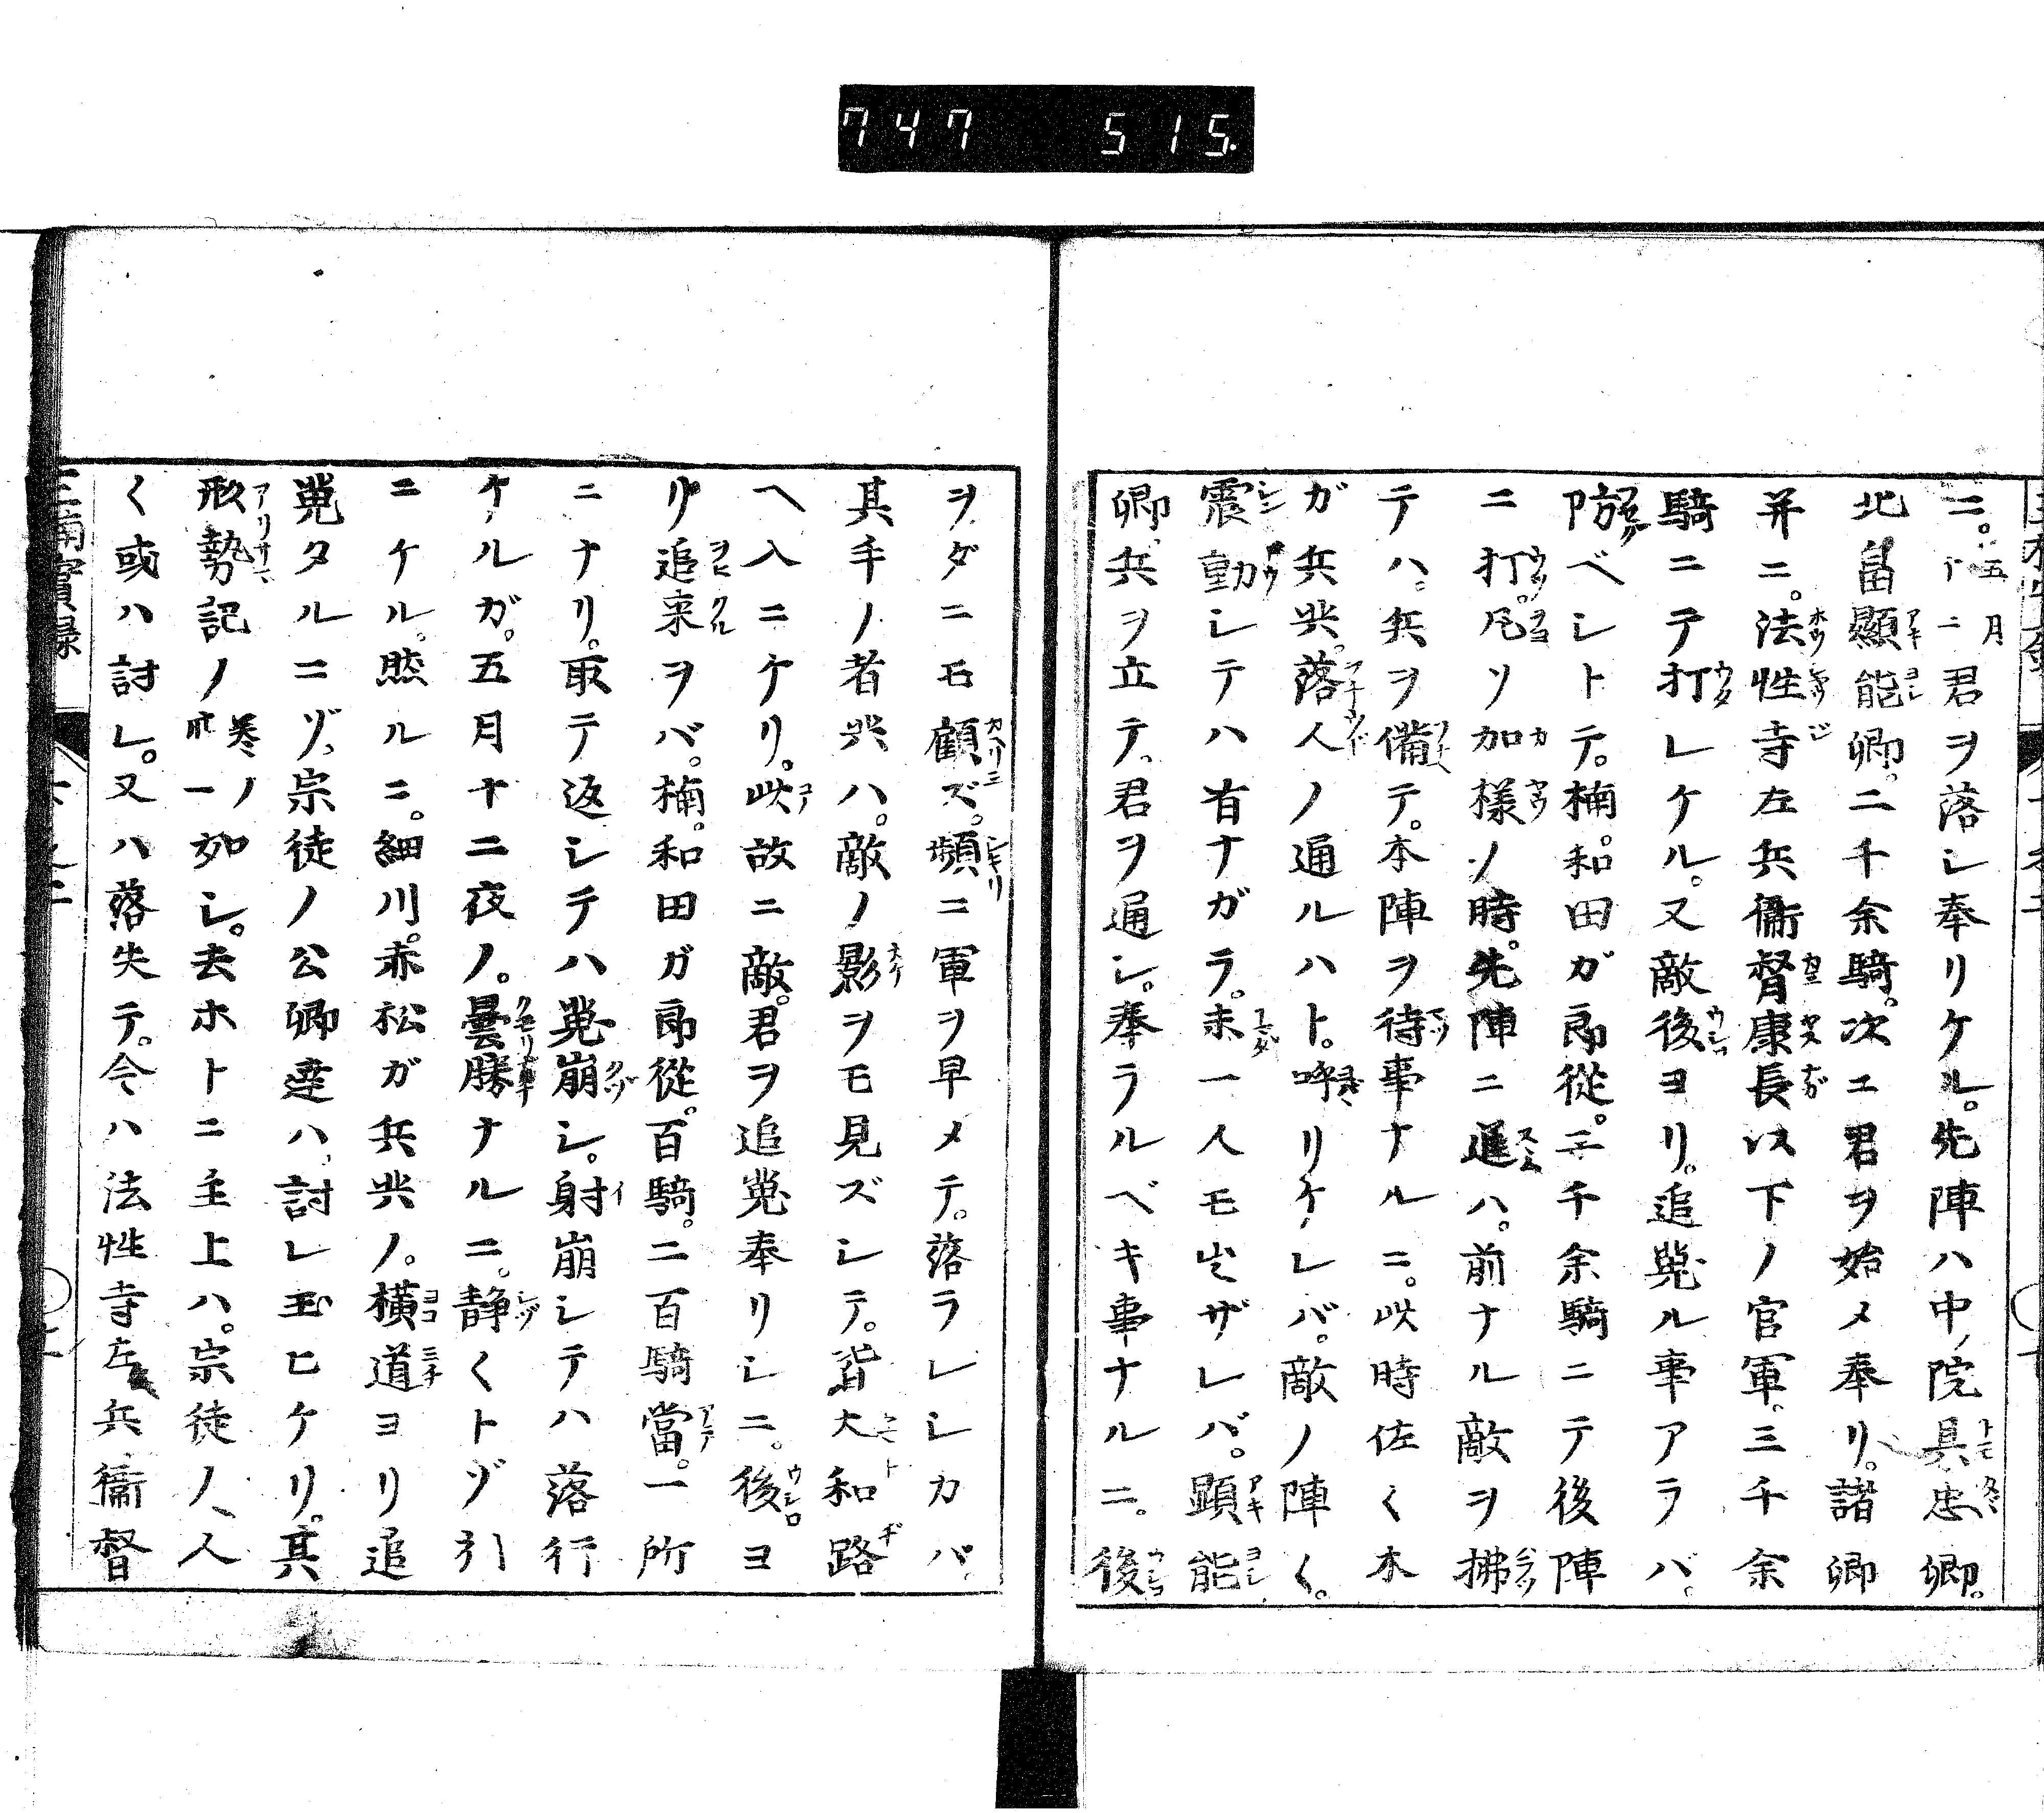 747 515.
ニ。五月ニ君ヲ落シ奉リケル。先陣ハ中ノ院具忠卿。
北畠顯能卿。二千余騎。次ニ君ヲ始メ奉リ。諸卿
并ニ。法性寺左兵衞督康長以下ノ官軍。三千余
騎ニテ打レケル。又敵後ヨリ。追擊ル事アラバ。
防ベシトテ。楠。和田ガ郎從。二千余騎ニテ後陣
ニ打。凡ソ加様ノ時。先陣ニ進ハ。前ナル敵ヲ拂
テハ。兵ヲ備テ。本陣ヲ待事ナルニ。此時佐々木
ガ兵共。落人ノ通ルハト。呼リケレバ。敵ノ陣々。
震動シテハ有ナガラ。未一人モ出ザレバ。顯能
卿。兵ヲ立テ。君ヲ通シ。奉ラルベキ事ナルニ。後
ヲダニモ顧ズ。頻ニ軍ヲ早メテ。落ラレシカバ。
其手ノ者共ハ。敵ノ影ヲモ見ズシテ。皆大和路
ヘ入ニケリ。此故ニ敵。君ヲ追擊奉リシニ。後ヨ
リ追来ヲバ。楠。和田ガ郎從。百騎。二百騎當。一所
ニナリ。取テ返シテハ擊崩シ。射崩シテハ落行
ケルガ。五月十二夜ノ。曇勝ナルニ。静々トゾ引
ニケル。然ルニ。細川。赤松ガ兵共ノ。横道ヨリ追
擊タルニゾ。宗徒ノ公卿達ハ。討レ玉ヒケリ。其
形勢記ノ巻ノ一如シ。去ホトニ主上ハ。宗徒ノ人
々或ハ討レ。又ハ落失テ。今ハ法性寺左兵衞督